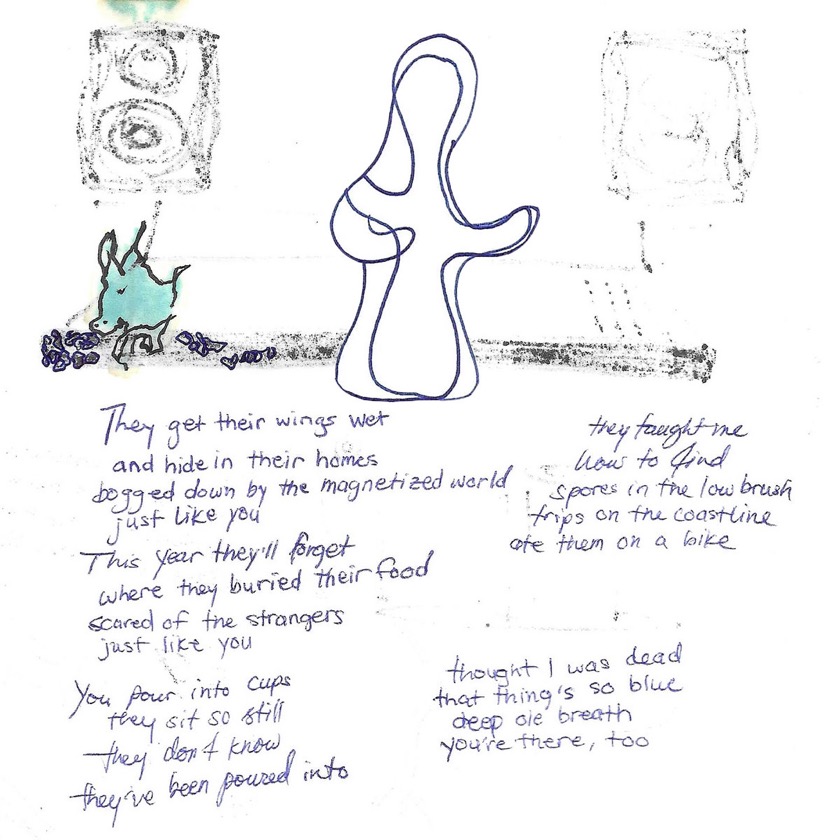 They get their wings wet
and hide in their homes
bogged down by the magnetized world
just like you
This year they'll forget
where they buried their food
scared of the strangers
just like you
You pour into cups
they sit so still
they don't know
they've been poured into
they taught me
how to find
spores in the low brush
trips on the coastline
ate them on a bike
thought I was dead
that thing's so blue
deep ole breath
you're there, too